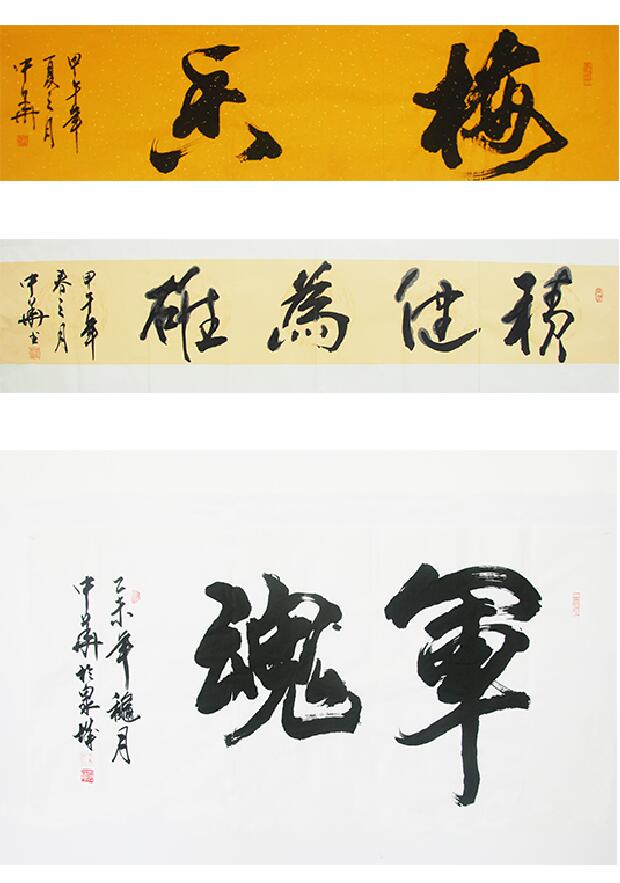 梅香
甲午年
夏之月
中華
積健為雄
甲午年
春之月
中華书
軍魂
乙未年穐月
中華於泉城